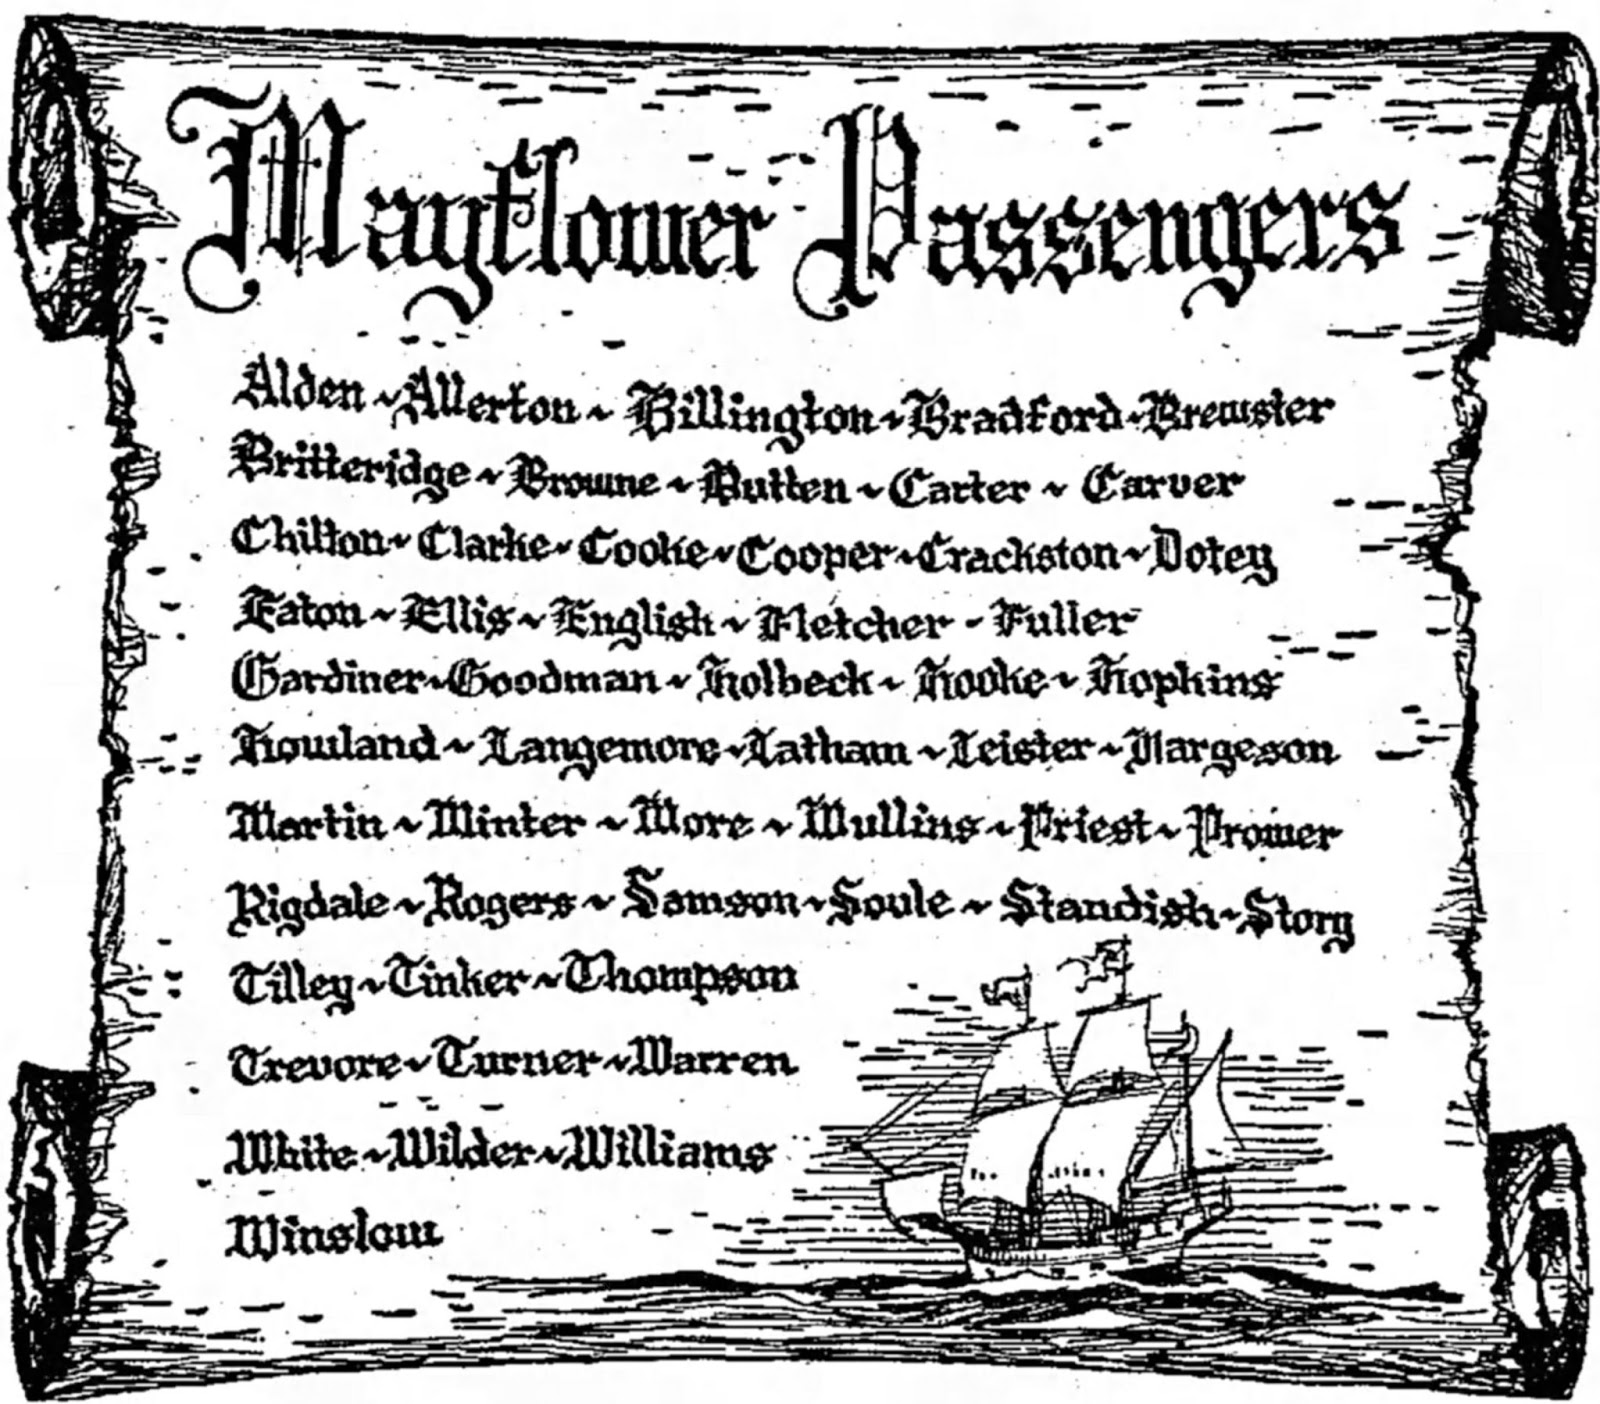 Mayflower Passengers
Alden ~ Allerton ~ Billington ~ Bradford ~ Brewster
Britteridge ~ Browne ~ Butten ~ Carter ~ Carver
Chilton ~ Clarke ~ Cooke ~ Cooper ~ Crackston ~ Dotey
Eaton ~ Ellis ~ English ~ Fletcher - Fuller
Gardiner ~ Goodman ~ Holbeck ~ Hooke ~ Hopkins
Howland ~ Langemore ~ Latham ~ Leister ~ Margeson
Martin ~ Minter ~ More ~ Mullins ~ Priest ~ Prower
Rigdale ~ Rogers ~ Samson ~ Soule ~ Standish ~ Story
Tilley ~ Tinker ~ Thompson
Trevore ~ Turner ~ Warren
White ~ Wilder ~ Williams
Winslow